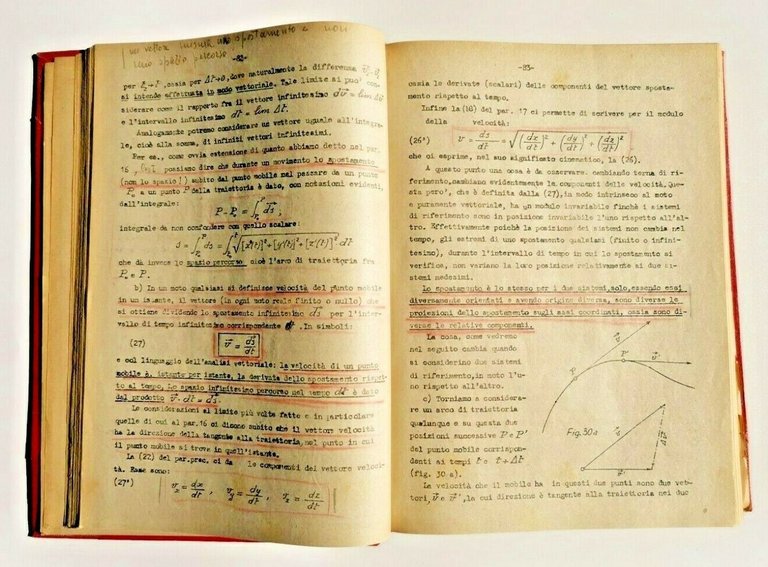 un vettore misura uno spostamento e non
uno spazio percorso
-82-
ossia per Δt→0, dove naturalmente la differenza
si intende effettuata in modo vettoriale. Tale limite si puo' con-
siderare come il rapporto fra il vettore infinitesimo
e l'intervallo infinitesimo dt = lim Δt.
Analogamente potremo considerare un vettore uguale all'integra-
le, cioè alla somma, di infiniti vettori infinitesimi.
Per es., come ovvia estensione di quanto abbiamo detto nel par.
16, possiamo dire che durante un movimento lo spostamento
(non lo spazio!) subito dal punto mobile nel passare da un punto
P₀ a un punto P della traiettoria è dato, con notazioni evidenti,
dall'integrale:
P - P₀ = ∫ ds⃗,
integrale da non confondere con quello scalare:
s = ∫ ds = ∫ √[x'(t)]²+[y'(t)]²+[z'(t)]² dt
che dà invece lo spazio percorso, cioè l'arco di traiettoria fra
P₀ e P.
b) In un moto qualsiasi si definisce velocità del punto mobile
in un istante, il vettore (in ogni moto reale finito o nullo) che
si ottiene dividendo lo spostamento infinitesimo ds⃗ per l'inter-
vallo di tempo infinitesimo corrispondente dt. In simboli:
(27) v⃗ = ds⃗/dt
e col linguaggio dell'analisi vettoriale: la velocità di un punto
mobile è, istante per istante, la derivata dello spostamento rispet-
to al tempo. Lo spazio infinitesimo percorso nel tempo dt è dato
dal prodotto v⃗·dt = ds⃗.
Le considerazioni al limite più volte fatte e in particolare
quelle di cui al par.16 ci dicono subito che il vettore velocità
ha la direzione della tangente alla traiettoria, nel punto in cui
il punto mobile si trova in quell'istante.
La (22) del par.prec. ci dà le componenti del vettore veloci-
tà. Esse sono:
(27') vₓ = dx/dt , v_y = dy/dt , v_z = dz/dt
-83-
ossia le derivate (scalari) delle componenti del vettore sposta-
mento rispetto al tempo.
Infine la (18) del par. 17 ci permette di scrivere per il modulo
della velocità:
(26') v = ds/dt = √(dx/dt)² + (dy/dt)² + (dz/dt)²
che ci esprime, nel suo significato cinematico, la (26).
A questo punto una cosa è da osservare. Cambiando terna di ri-
ferimento, cambiano evidentemente le componenti della velocità. Que-
sta pero', che è definita dalla (27), in modo intrinseco al moto
e puramente vettoriale, ha un modulo invariabile finchè i sistemi
di riferimento sono in posizione invariabile l'uno rispetto all'al-
tro. Effettivamente poichè la posizione dei sistemi non cambia nel
tempo, gli estremi di uno spostamento qualsiasi (finito o infini-
tesimo), durante l'intervallo di tempo in cui lo spostamento si
verifica, non variano la loro posizione relativamente ai due si-
stemi medesimi.
Lo spostamento è lo stesso per i due sistemi, solo, essendo essi
diversamente orientati e avendo origine diversa, sono diverse le
proiezioni dello spostamento sugli assi coordinati, ossia sono di-
verse le relative componenti.
La cosa, come vedremo
nel seguito cambia quando
si considerino due sistemi
di riferimento, in moto l'u-
no rispetto all'altro.
c) Torniamo a considera-
re un arco di traiettoria
qualunque e su questa due
posizioni successive P e P'
del punto mobile corrispon-
denti ai tempi t e t + Δt
(fig. 30 a).
P
P'
v⃗
v⃗'
Fig. 30 a
v⃗
Δv⃗
v⃗'
La velocità che il mobile ha in questi due punti sono due vet-
tori, v⃗ e v⃗', la cui direzione è tangente alla traiettoria nei due